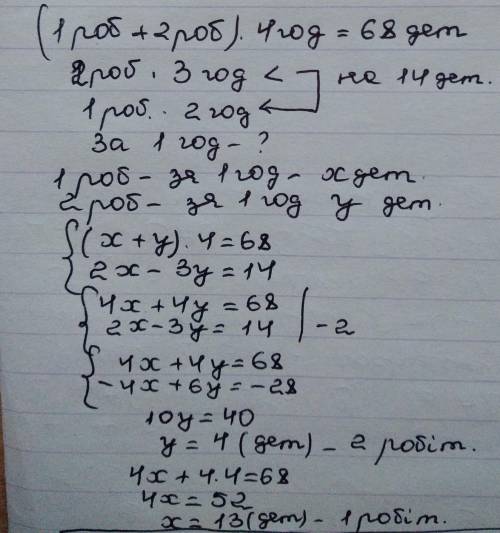 (1 роб + 2 роб) · 4 год = 68 дет
2 роб · 3 год < на 14 дет.
1 роб. · 2 год
За 1 год - ?
1 роб - за 1 год - x дет.
2 роб - за 1 год y дет.
(x + y) · 4 = 68
2x - 3y = 14
4x + 4y = 68
2x - 3y = 14 | -2
4x + 4y = 68
-4x + 6y = -28
10y = 40
y = 4 (дет) - 2 робіт.
4x + 4 · 4 = 68
4x = 52
x = 13 (дет) - 1 робіт.